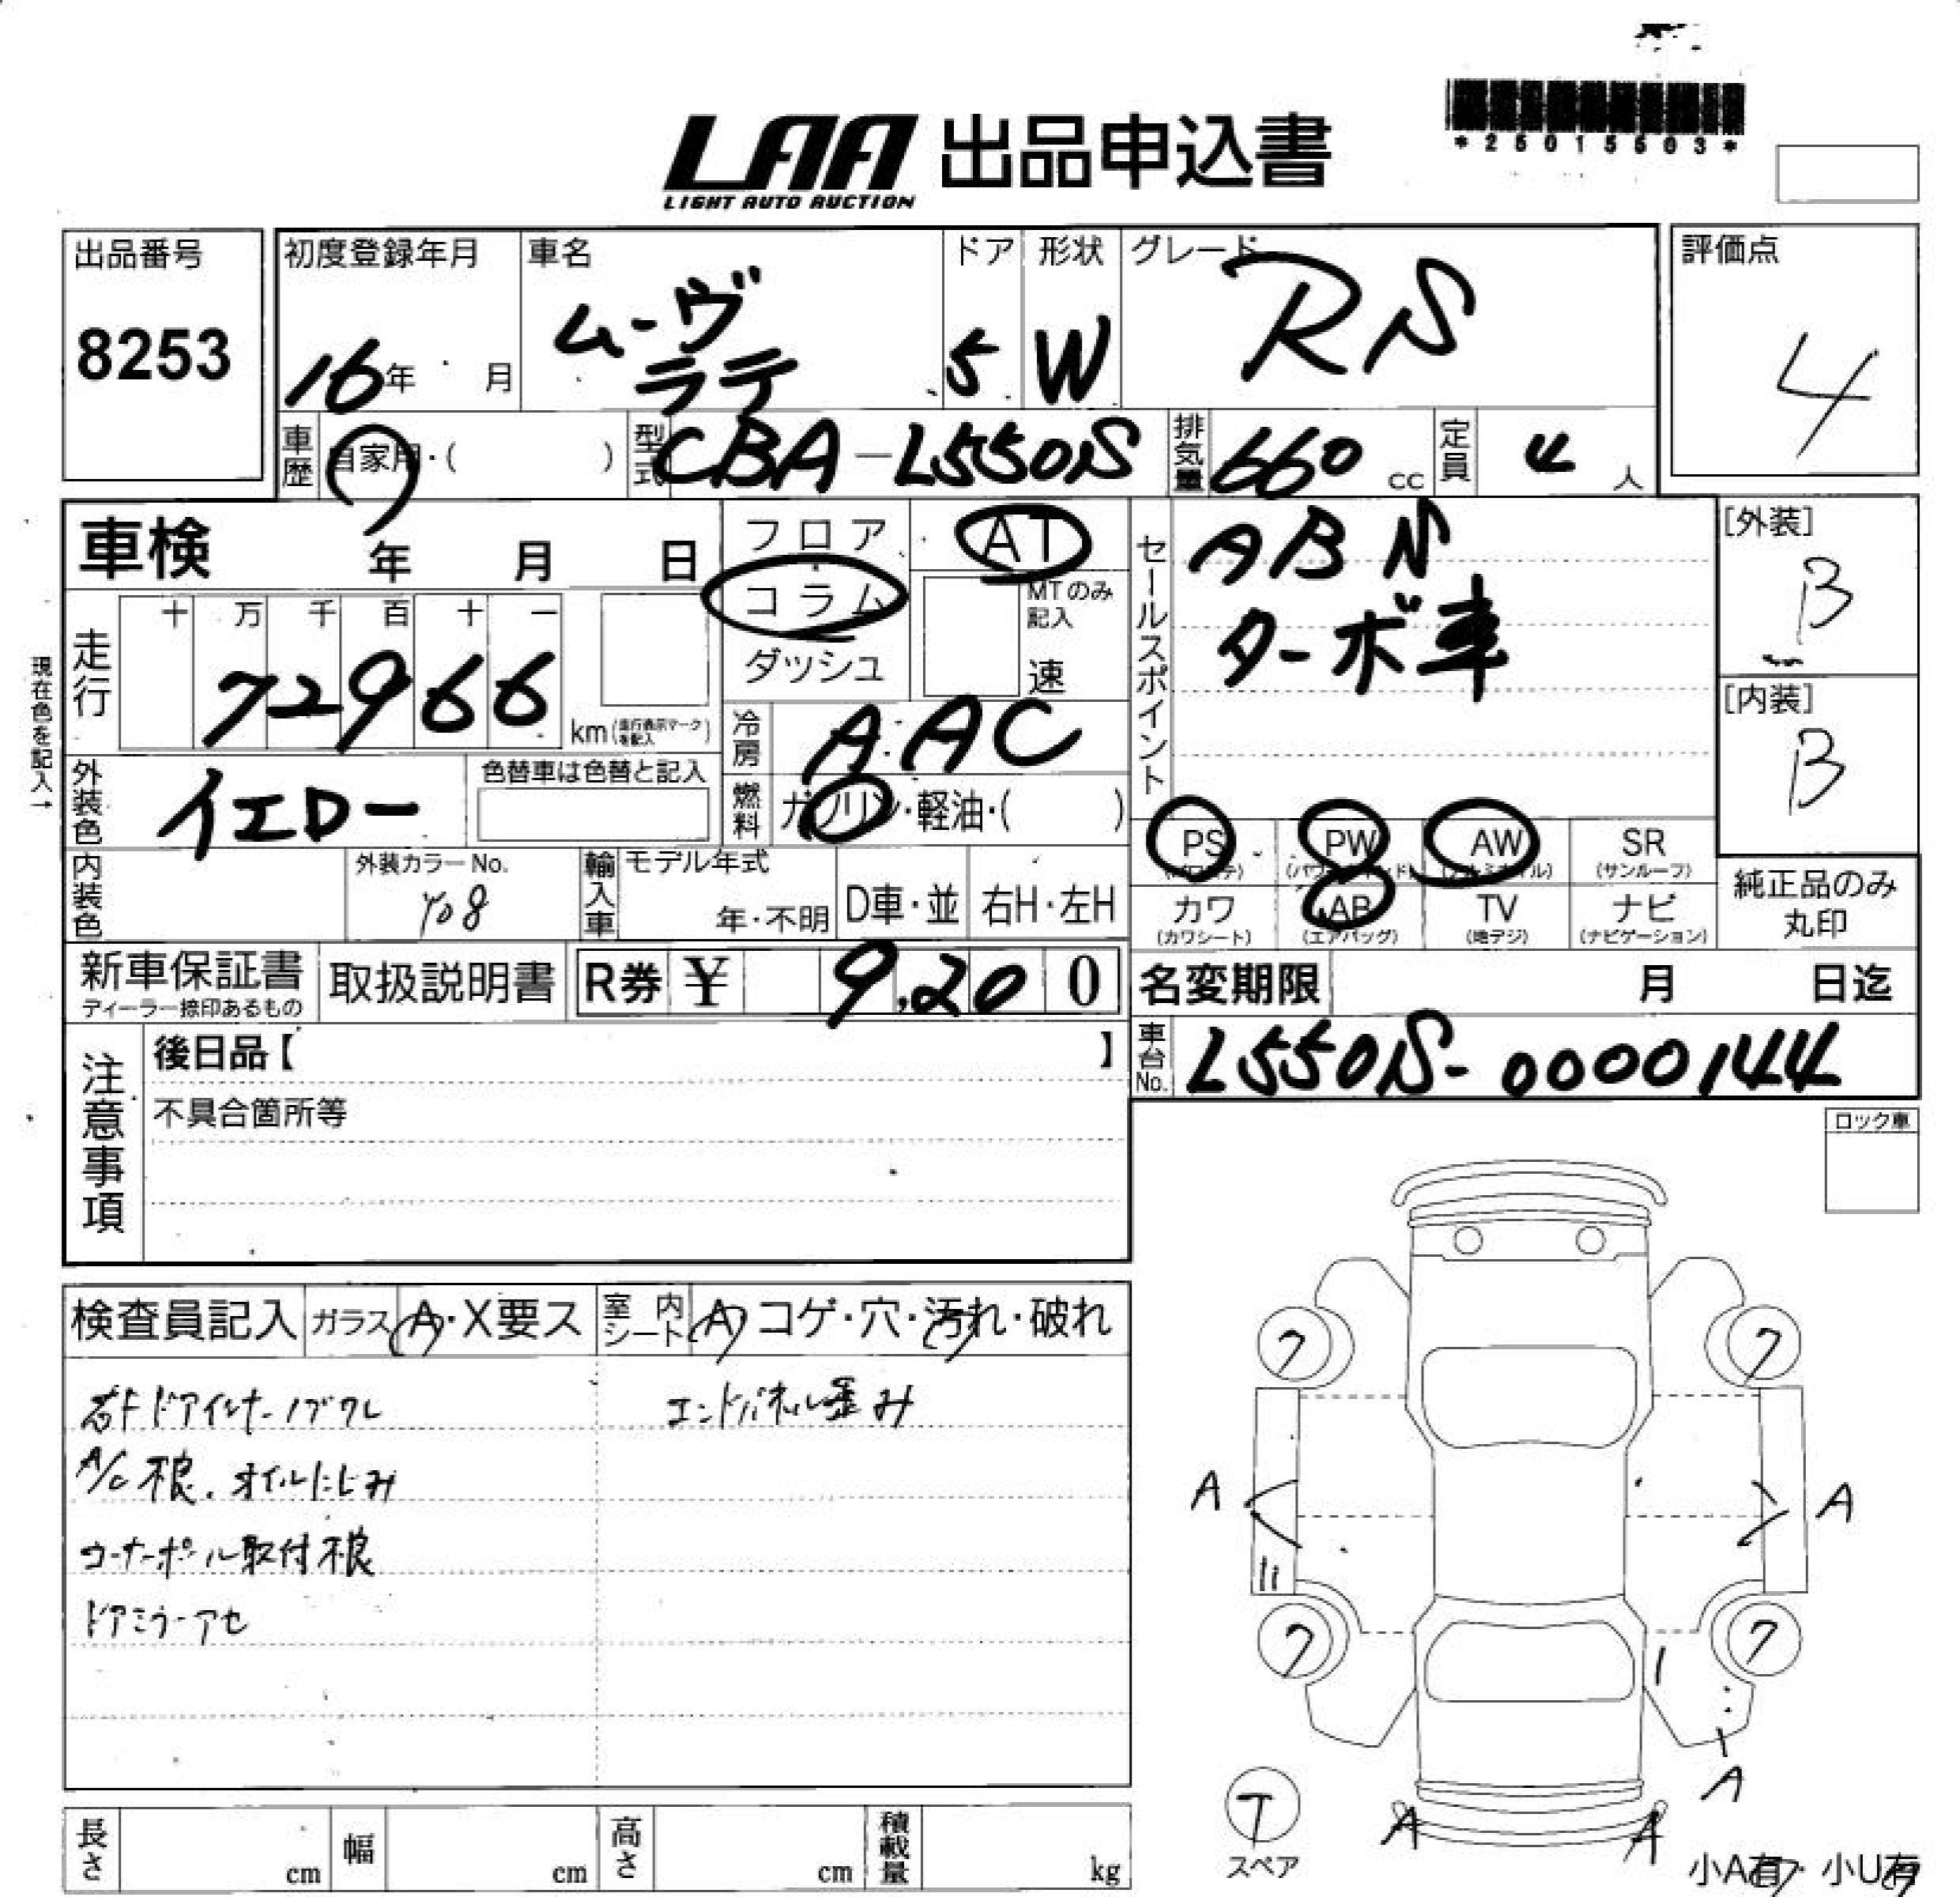 *25015503*
LAA 出品申込書
LIGHT AUTO AUCTION
出品番号
8253
初度登録年月
16年 月
車名
ムーヴ
ラテ
ドア
5
形状
W
グレード
RS
評価点
4
車歴
自家用・( )
型式
CBA-L550S
排気量
660 cc
定員
4 人
車検 年 月 日
フロア
コラム
ダッシュ
AT
MTのみ
記入
速
セールスポイント
ABS
ターボ車
[外装]
B
[内装]
B
現在色を記入→
走行
十 万 千 百 十 一
72966
km(走行表示マークを記入)
冷房
AAC
外装色
イエロー
色替車は色替と記入
燃料
ガソリン・軽油・( )
PS
PW
AW
SR
(サンルーフ)
内装色
外装カラーNo.
Y08
輸入車
モデル年式
年・不明
D車・並
右H・左H
カワ
(カワシート)
AB
(エアバッグ)
TV
(地デジ)
ナビ
(ナビゲーション)
純正品のみ
丸印
新車保証書
ディーラー捺印あるもの
取扱説明書
R券 ¥ 9,200
名変期限 月 日迄
車台No.
L550S-0000144
注意事項
後日品【 】
不具合箇所等
ロック車
検査員記入
ガラス
A・X要ス
室内シート
A コゲ・穴・汚れ・破れ
右Fドアインナーノブワレ
エンドパネル歪み
A/C不良、オイルにじみ
コーナーポール取付不良
ドアミラーアセ
フ
フ
A
A
フ
フ
A
A
A
T
スペア
小A有・小U有
長さ cm
幅 cm
高さ cm
積載量 kg